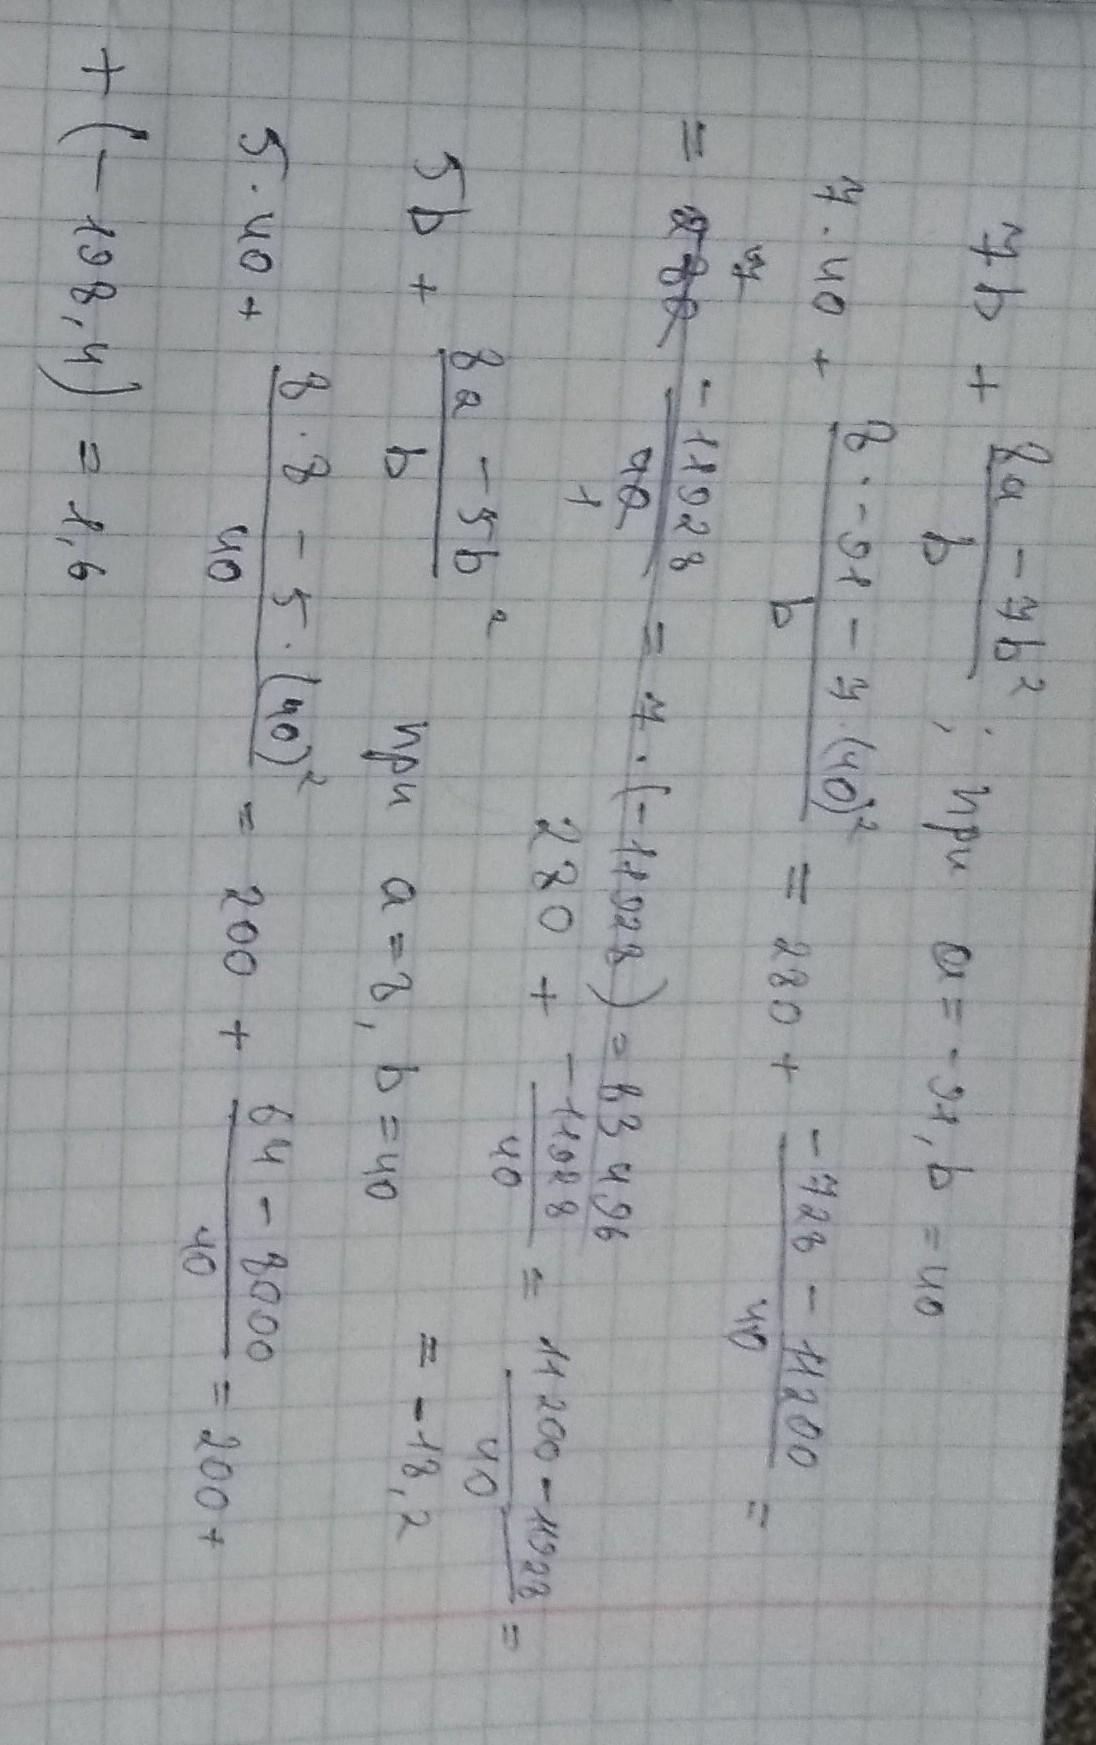 7b + \frac{8a - 7b^2}{b} ; при a = -91, b = 40
7 · 40 + \frac{8 · -91 - 7 · (40)^2}{b} = 280 + \frac{-728 - 11200}{40} =
= 280 \frac{-11928}{40} = 7 · (-11928) = 83496
7
1
280 + \frac{-11928}{40} = \frac{11200 - 11928}{40} =
= -18,2
5b + \frac{8a - 5b^2}{b} при a = 8, b = 40
5 · 40 + \frac{8 · 8 - 5 · (40)^2}{40} = 200 + \frac{64 - 8000}{40} = 200 +
+ (-198,4) = 1,6